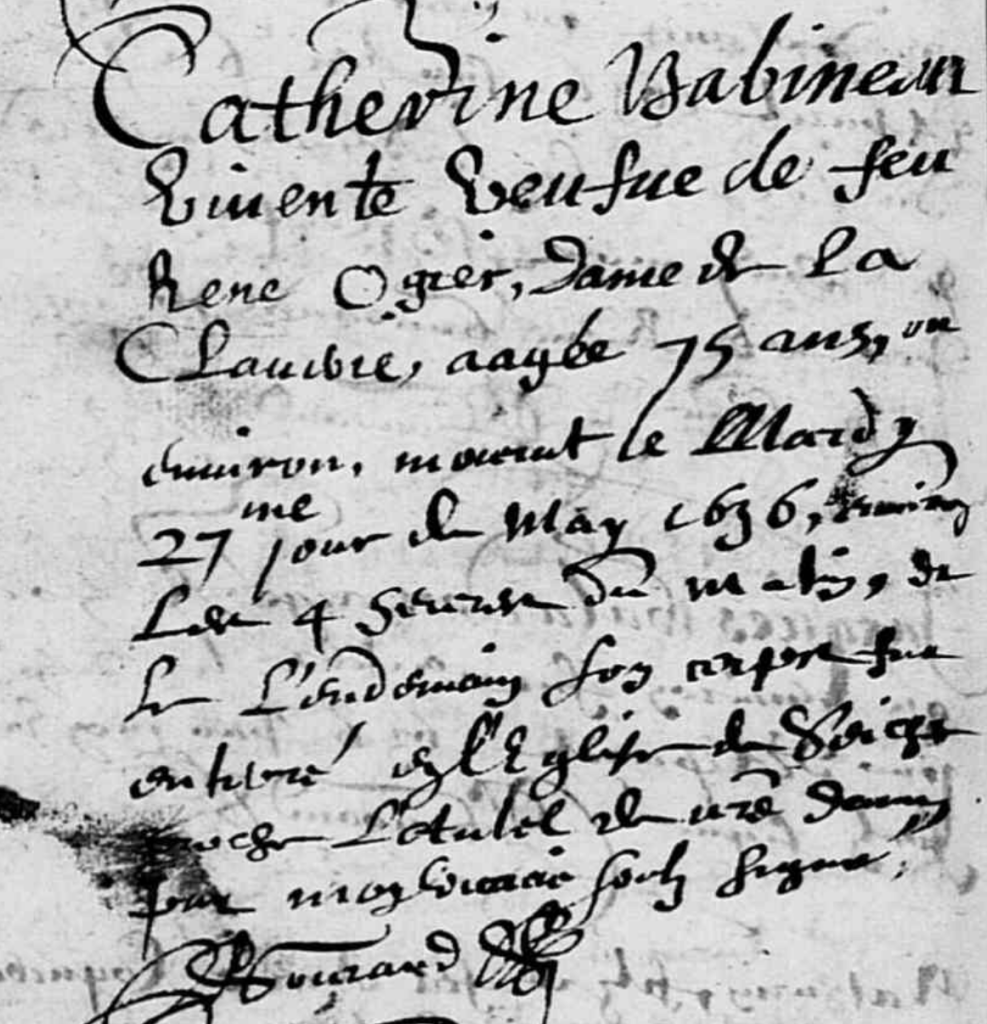 Catherine Babineau
Vivente veufue de feu
Rene Ogier, dame de la
Clauvre, aagée 75 ans, ou
environ, mourut le Mardy
27me jour de May 1636, environ
les 4 heures du matin, et
le l'endemain son corps fut
enterré en l'Eglise de Seiche
proche l'Autel de nrē dame
par moy vicaire soubs signé,